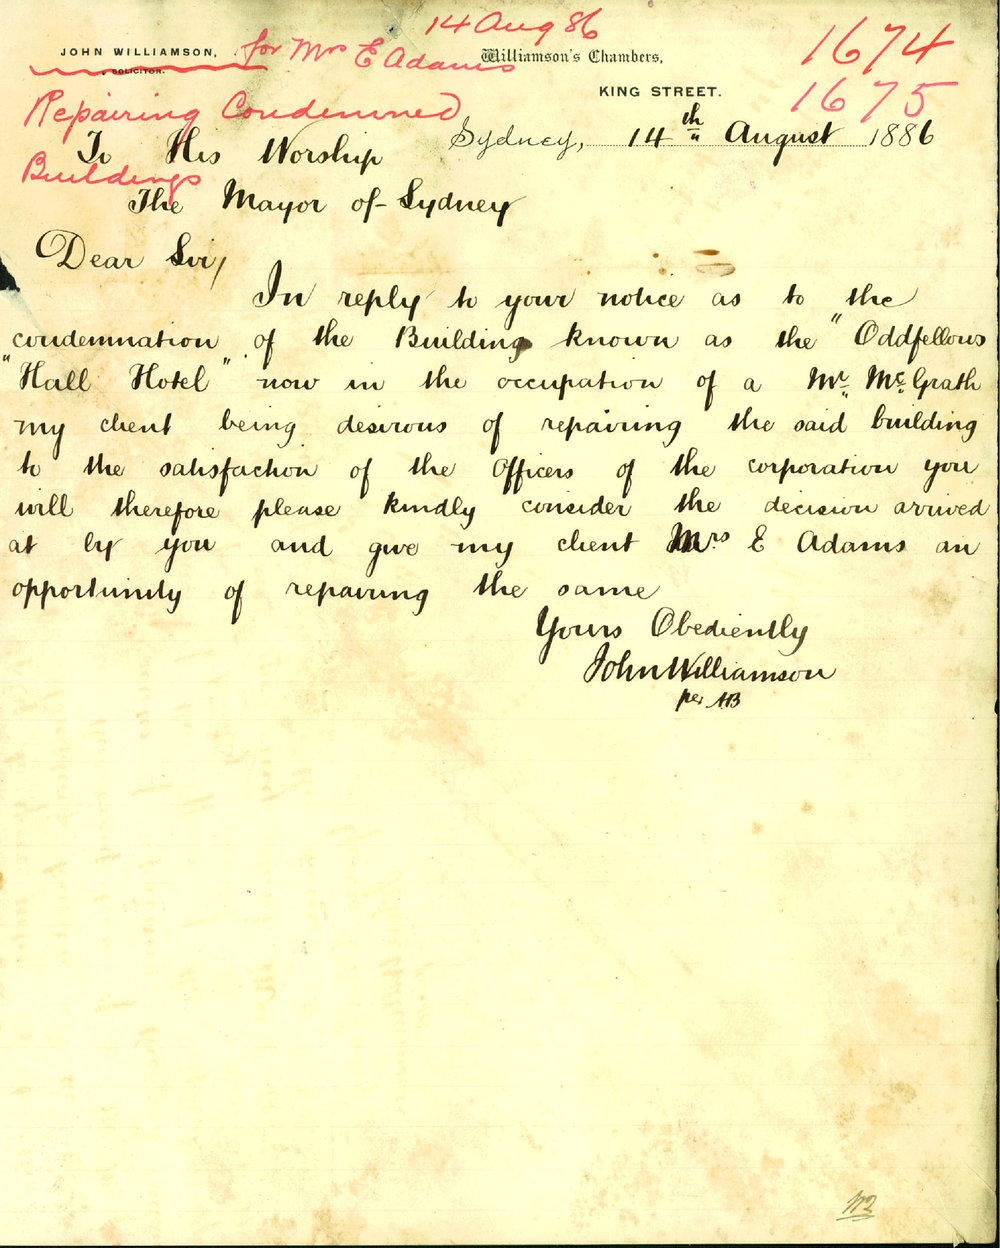 14 Aug 86
1674
1675
JOHN WILLIAMSON,
SOLICITOR.
for Mrs E Adams
Williamson's Chambers,
KING STREET.
Repairing Condemned
Buildings
Sydney, 14th August 1886
To His Worship
The Mayor of Sydney
Dear Sir,
In reply to your notice as to the
condemnation of the Building known as the "Oddfellows
"Hall Hotel" now in the occupation of a Mr McGrath
my client being desirous of repairing the said building
to the satisfaction of the Officers of the corporation you
will therefore please kindly consider the decision arrived
at by you and give my client Mrs E Adams an
opportunity of repairing the same
Yours Obediently
John Williamson
per AB